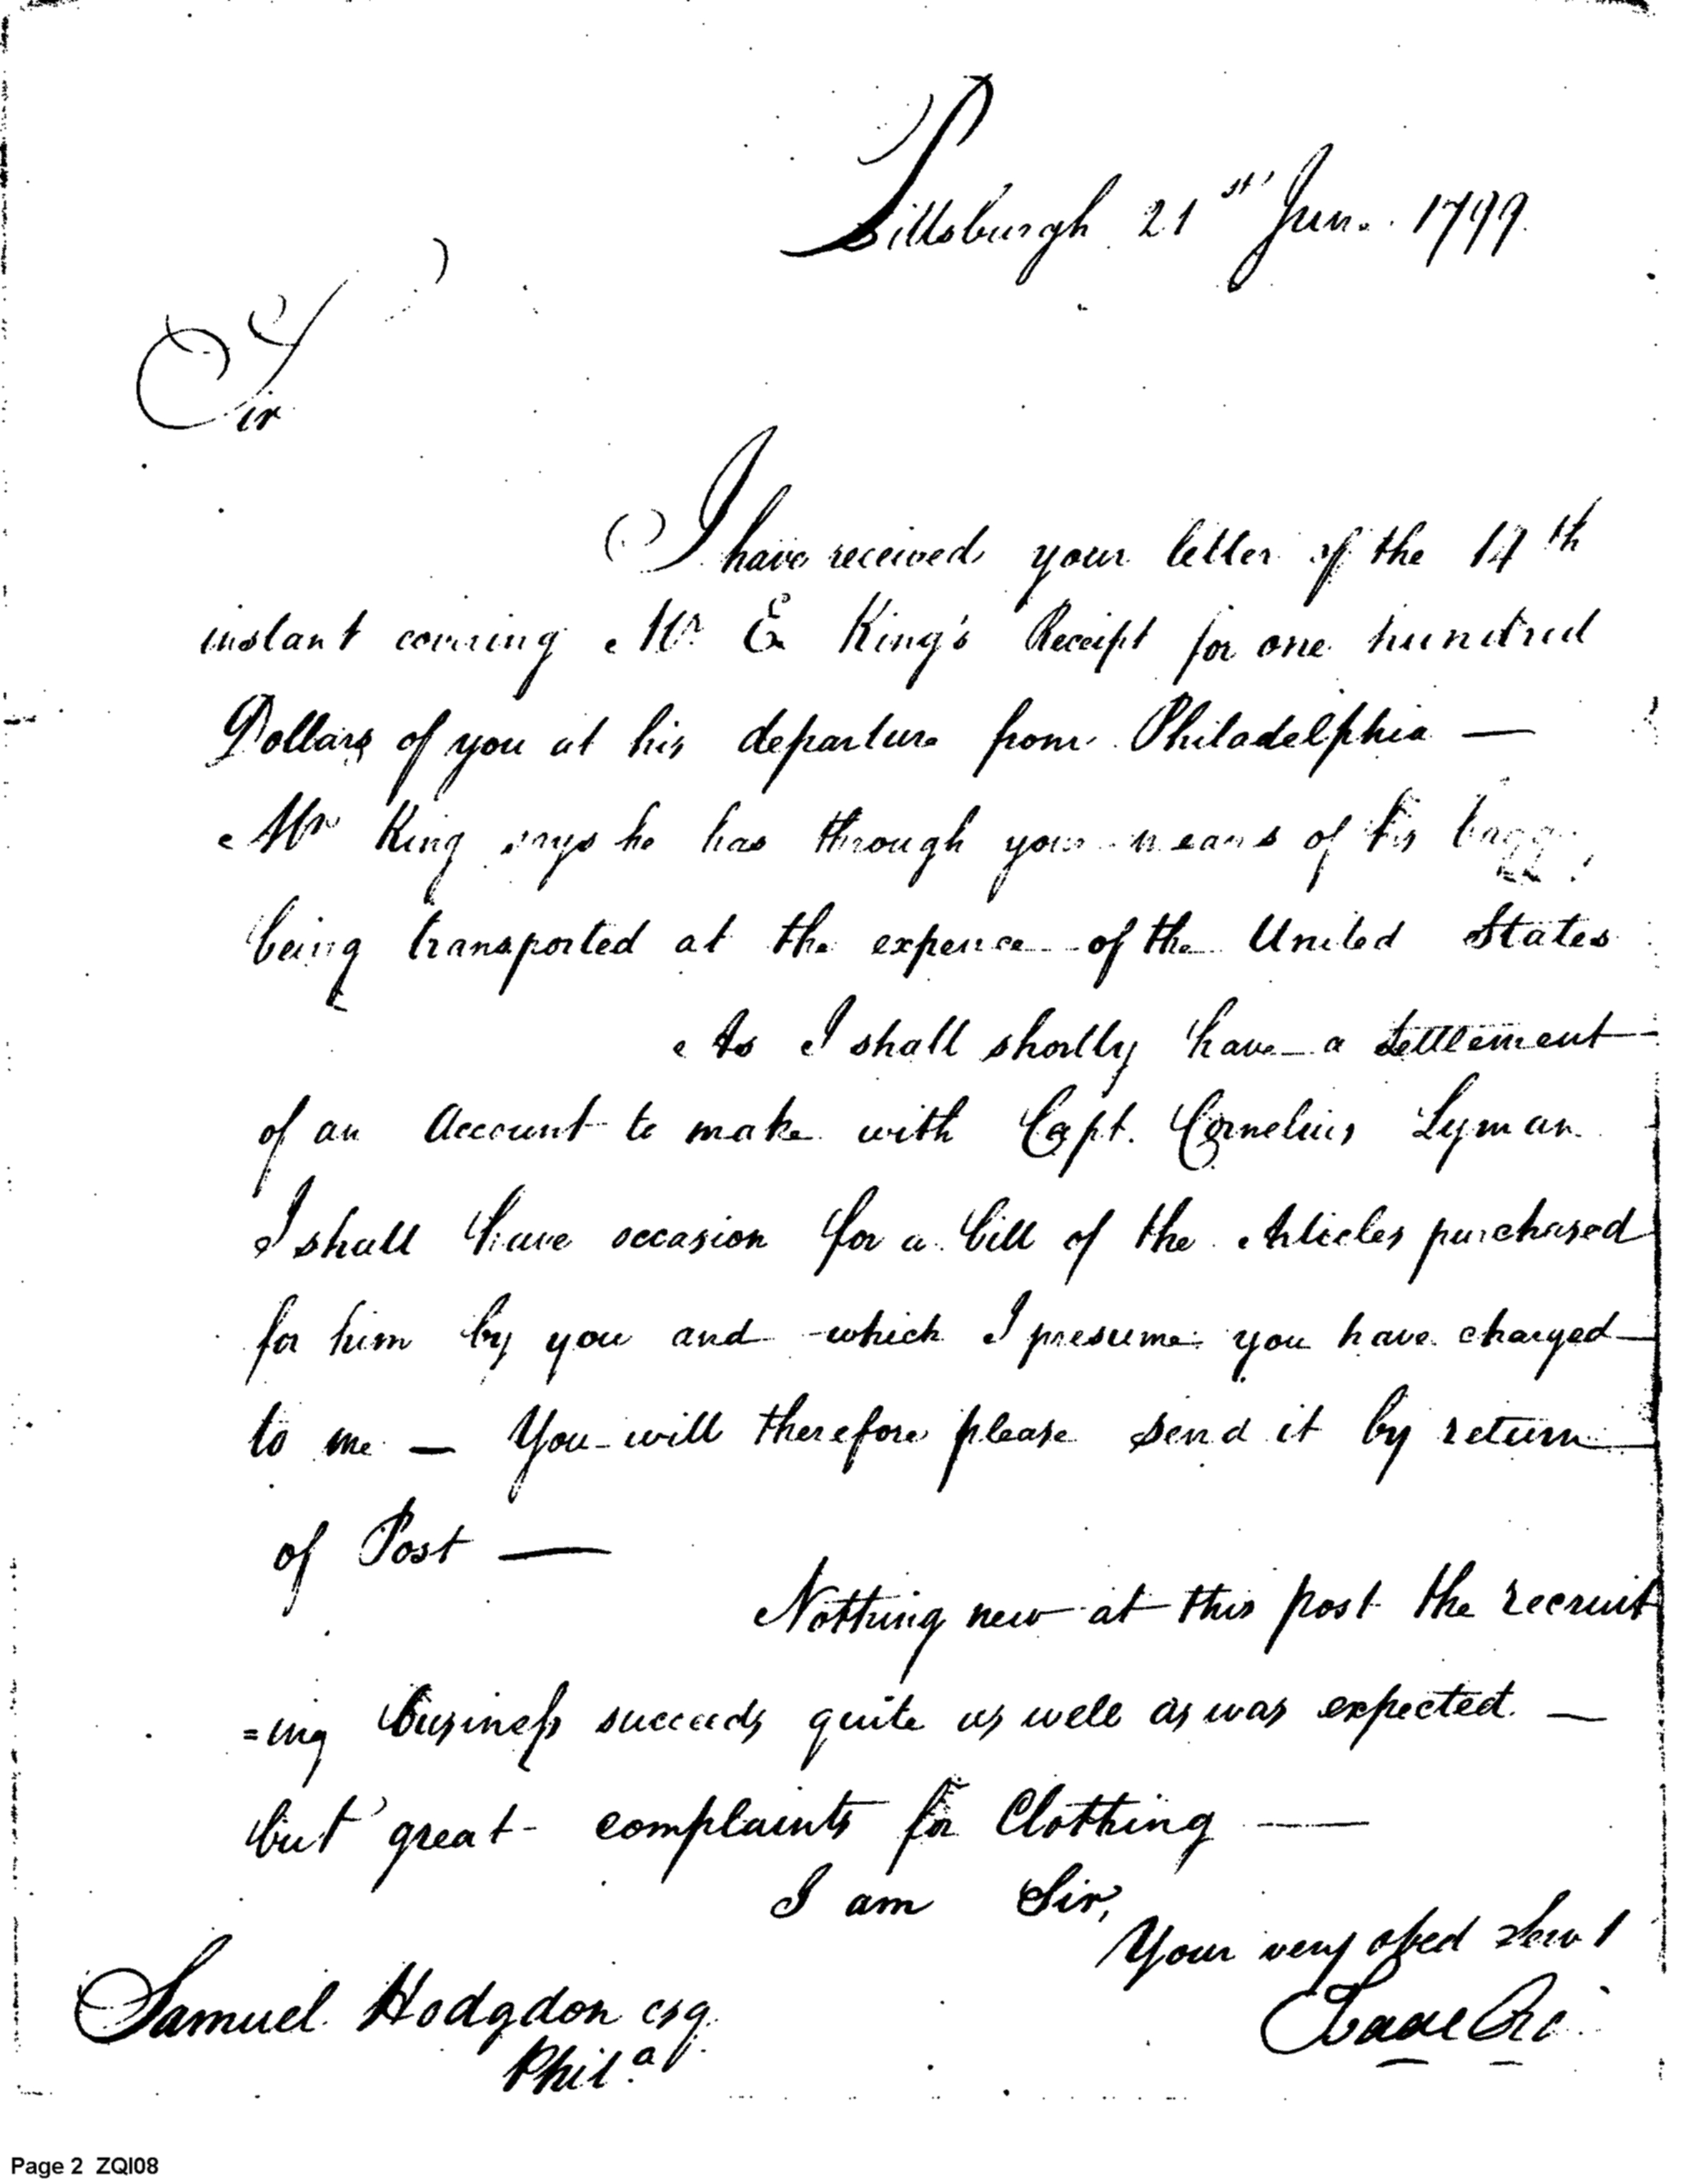 Pittsburgh 21st Jun. 1799.
Sir
I have received your letter of the 14th
instant covering Mr. E King's Receipt for one hundred
Dollars of you at his departure from Philadelphia —
Mr King says he has through your means of his
being transported at the expence of the United States
As I shall shortly have a settlement
of an Account to make with Capt. Cornelius Lyman
I shall have occasion for a bill of the Articles purchased
for him by you and which I presume you have charged
to me — You will therefore please send it by return
of Post —
Nothing new at this post the recruit
=ing business succeeds quite as well as was expected. —
but great complaints for Clothing —
I am Sir,
Your very obed Serv t
Samuel Hodgdon esq.
Isaac
Phila.
Page 2 ZQI08